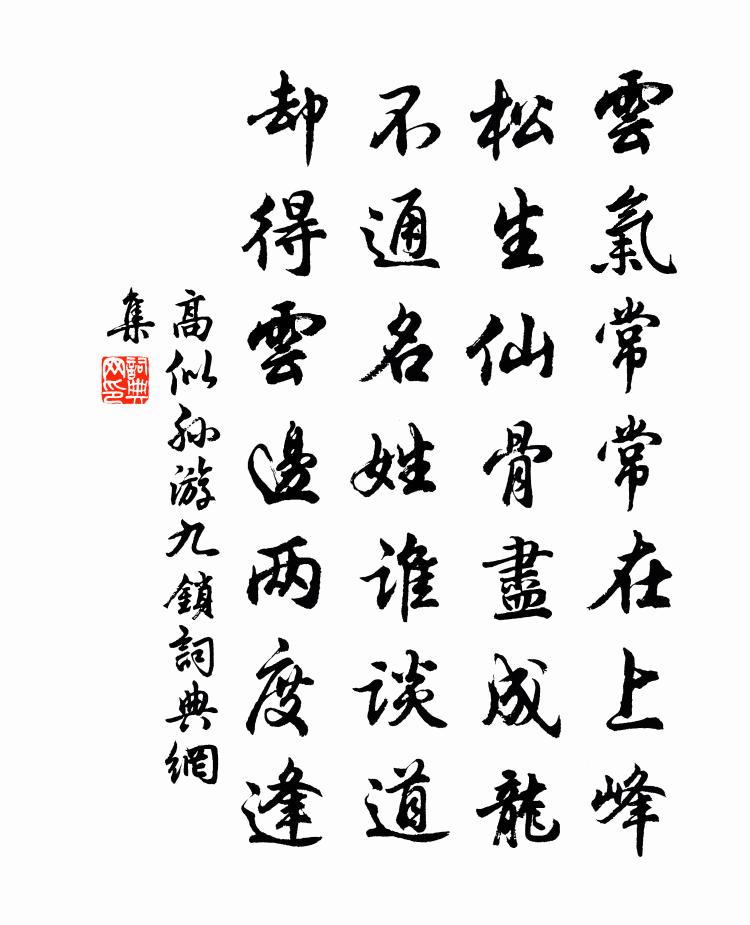 雲氣常常在上峰
松生仙骨盡成龍
不通名姓誰談道
却得雲邊两度逢
高似孙游九鎖詞典網
集
詞典
网印